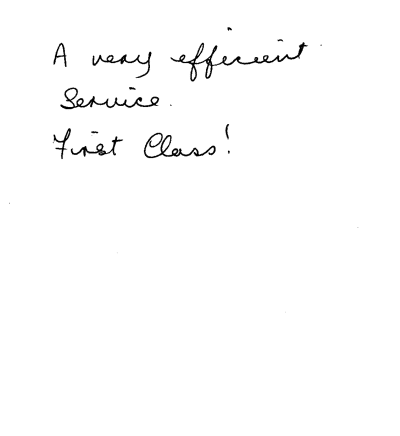 A very efficient
Service.
First Class!